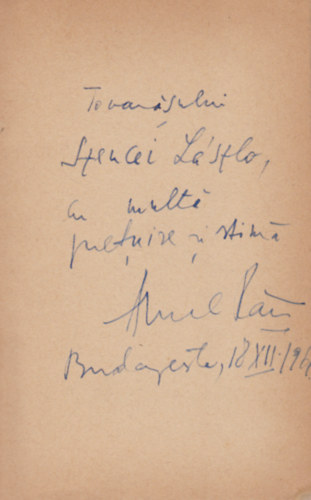 Tovarășului
Szenczi László,
cu multă
prețuire și stimă
Aurel Rău
Budapesta, 18 XII 196